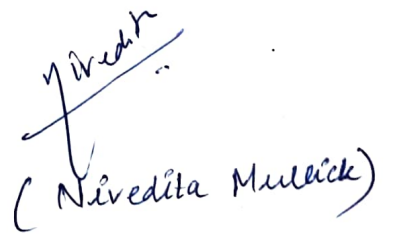 Nivedita
(Nivedita Mullick)